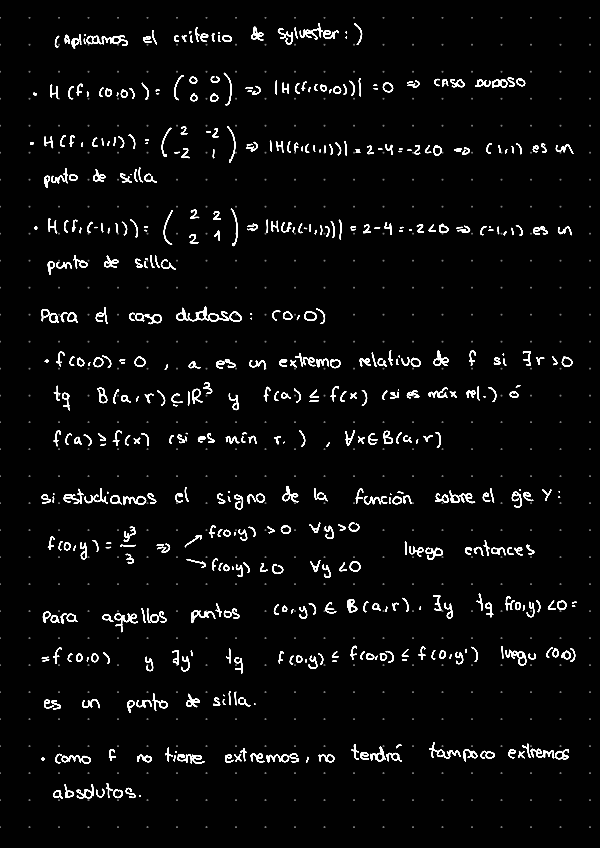 (Aplicamos el criterio de Sylvester:)
· H(f, (0,0)) = (0 0 / 0 0) ⇒ |H(f,(0,0))| = 0 ⇒ CASO DUDOSO
· H(f, (1,1)) = (2 -2 / -2 1) ⇒ |H(f,(1,1))| = 2-4 = -2<0 ⇒ (1,1) es un
punto de silla
· H(f,(-1,1)) = (2 2 / 2 1) ⇒ |H(f,(-1,1))| = 2-4 = -2<0 ⇒ (-1,1) es un
punto de silla
Para el caso dudoso: (0,0)
· f(0,0) = 0 , a es un extremo relativo de f si ∃r>0
tq B(a,r) ⊆ IR³ y f(a) ≤ f(x) (si es máx rel.) ó
f(a) ≥ f(x) (si es mín r. ) , ∀x∈B(a,r)
si estudiamos el signo de la función sobre el eje Y:
f(0,y) = y³/3 ⇒ → f(0,y) > 0 ∀y>0 → f(0,y) < 0 ∀y<0 luego entonces
Para aquellos puntos (0,y) ∈ B(a,r), ∃y tq f(0,y) <0 =
= f(0,0) y ∃y' tq f(0,y) ≤ f(0,0) ≤ f(0,y') luego (0,0)
es un punto de silla.
· como f no tiene extremos, no tendrá tampoco extremos
absolutos.